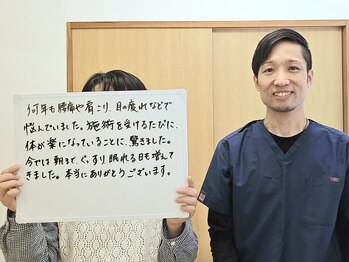 何年も腰痛や肩こり、目の疲れなどで
悩んでいました。施術を受けるたびに、
体が楽になっていることに、驚きました。
今では朝まで、ぐっすり眠れる日も増えて
きました。本当にありがとうございます。